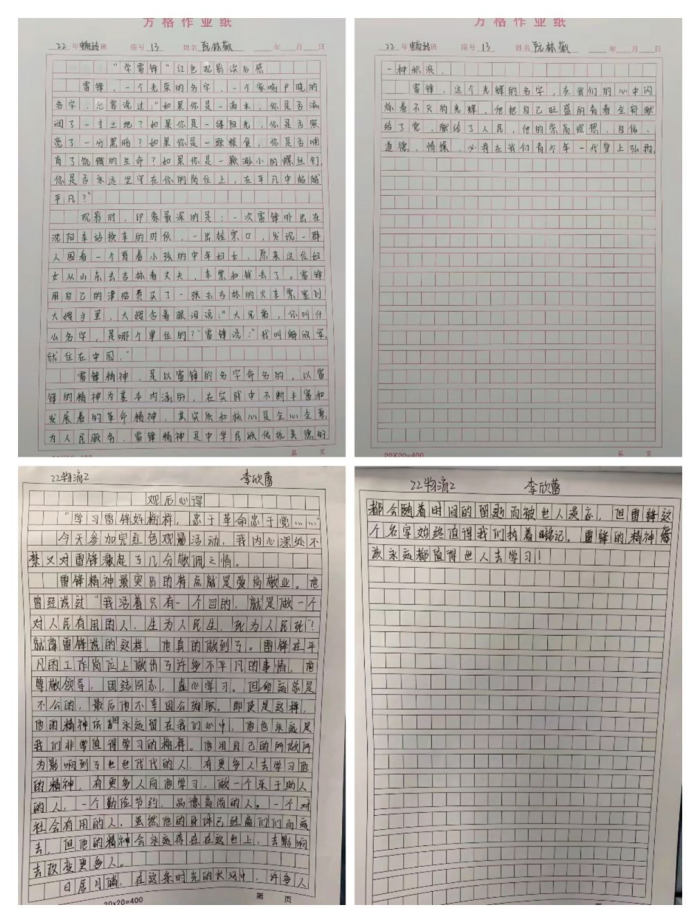 方格作业纸
22 年 班 编号 13 姓名 阮林敏 年 月 日
"学雷锋"红色观影心得
雷锋,一个光荣的名字,一个家喻户晓的
名字,他曾说过"如果你是一滴水,你是否滋
润了一寸土地?如果你是一缕阳光,你是否照
亮了一分黑暗?如果你是一颗粮食,你是否哺
育了饥饿的生命?如果你是一颗最小的螺丝钉,
你是否永远坚守在你的岗位上,在平凡中
平凡?"
观影时,印象最深的是:一次雷锋外出在
沈阳车站换车的时候,一出检票口,发现一群
人围着一个背着小孩的中年妇女,原来这位妇
女从山东去吉林看丈夫,车票和钱丢了。雷锋
用自己的津贴费买了一张去吉林的火车票塞到
大嫂手里,大嫂含着眼泪说:"大兄弟,你叫什
么名字,是哪个单位的?"雷锋说:"我叫解放军,
就住在中国。"
雷锋精神,是以雷锋的名字命名的,以雷
锋的精神为基本内涵的,在实践中不断丰富和
发展着的革命精神,其实质和核心是全心全意
为人民服务,雷锋精神是中华民族传统美德的
20×20=400 第 页
方格作业纸
22 年 班 编号 13 姓名 阮林敏 年 月 日
一种积淀。
雷锋,这个光辉的名字,在我们的心中闪
烁着不灭的光辉,他把自己旺盛的青春全部献
给了党,献给了人民,他的崇高理想、信念、
道德、情操,必将在我们青少年一代身上弘扬。
20×20=400 第 页
22物流2 李欣蕾
观后心得
"学习雷锋好榜样,忠于革命忠于党……"
今天参加完红色观影活动,我内心深处不
禁又对雷锋激起了几分敬佩之情。
雷锋精神最突出的特点就是爱岗敬业。他
曾经说过"我活着只有一个目的,就是做一个
对人民有用的人,生为人民生,死为人民死"!
就像雷锋说的这样,他真的做到了。雷锋在平
凡的工作岗位上做出了许多不平凡的事情,他
尊敬领导,团结同志,虚心学习。但命运总是
不公的,最后他不幸因公殉职。即使是这样,
他的精神依旧永远留在我们心中,他也永远是
我们非常值得学习的榜样。他用自己的所做所
为影响到了世世代代的人,有更多人去学习他
的精神,有更多人向他学习,做一个乐于助人
的人,一个勤俭节约,品德高尚的人。一个对
社会有用的人,虽然他的身体已经离们们而远
去,但他的精神会永远存在在这世上,去影响
去改变更多人。
日居月诸,在这条时光的长河中,许多人
20×20=400 第 页
22物流2 李欣蕾
都会随着时间的留逝而被世人遗忘,但雷锋这
个名字始终值得我们执着铭记。雷锋的精神
永远都值得世人去学习!